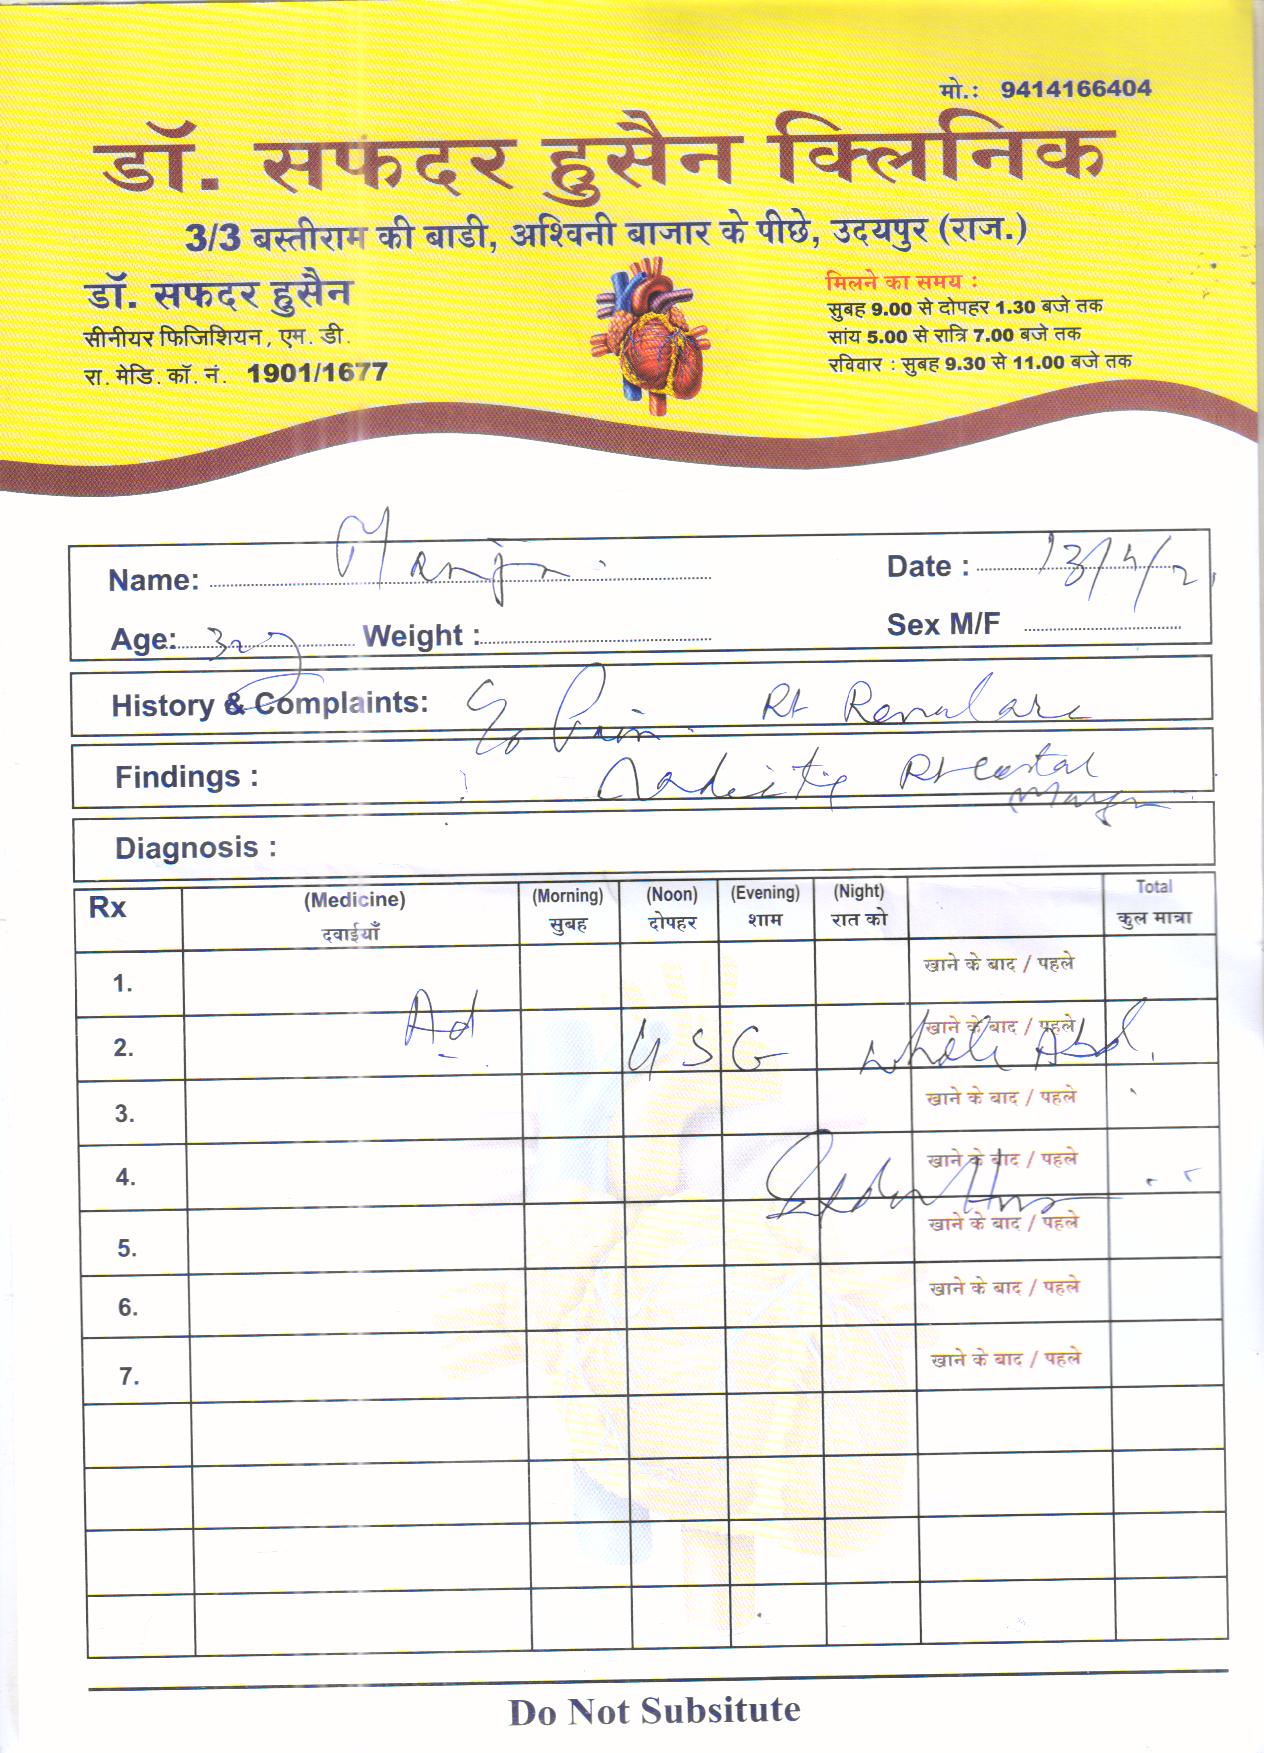 मो.: 9414166404
डॉ. सफदर हुसैन क्लिनिक
3/3 बस्तीराम की बाडी, अश्विनी बाजार के पीछे, उदयपुर (राज.)
डॉ. सफदर हुसैन
सीनीयर फिजिशियन, एम. डी.
रा. मेडि. कॉ. नं. 1901/1677
मिलने का समय :
सुबह 9.00 से दोपहर 1.30 बजे तक
सांय 5.00 से रात्रि 7.00 बजे तक
रविवार : सुबह 9.30 से 11.00 बजे तक
Name: Date :
Age: Weight : Sex M/F
History & Complaints: Pain Rt Renal area
Findings : Rt Costal
Margin
Diagnosis :
Rx (Medicine) (Morning) (Noon) (Evening) (Night) Total
दवाईयाँ सुबह दोपहर शाम रात को कुल मात्रा
1. खाने के बाद / पहले
2. खाने के बाद / पहले
Ad USG Whole Abd.
3. खाने के बाद / पहले
4. खाने के बाद / पहले
5. खाने के बाद / पहले
6. खाने के बाद / पहले
7. खाने के बाद / पहले
Do Not Subsitute